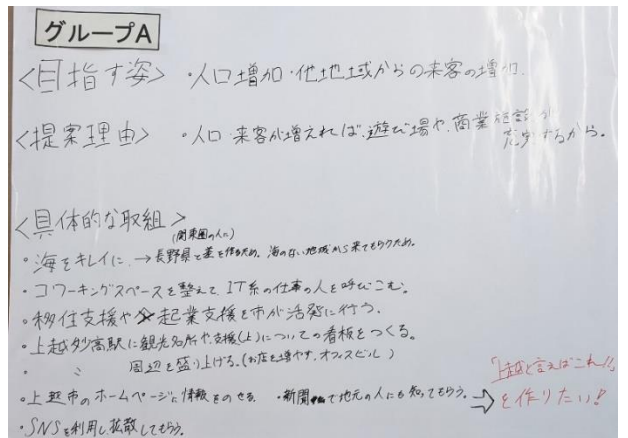 グループA
<目指す姿> ・人口増加・他地域からの来客の増加.
<提案理由> ・人口・来客が増えれば、遊び場や、商業施設が
充実するから。
<具体的な取組>
(関東圏の人に)
・海をキレイに. → 長野県と差を作るため。海のない地域から来てもらうため。
・コワーキングスペースを整えて、IT系の仕事の人を呼びこむ。
・移住支援や起業支援を市が活発に行う.
・上越妙高駅に観光名所や支援(上)についての看板をつくる。
・ 〃 周辺を盛り上げる.(お店を増やす.オフィスビル)
・上越市のホームページに情報をのせる. ・新聞で地元の人にも知ってもらう. ⇒
「上越と言えばこれ!!」
を作りたい!
・SNSを利用し拡散してもらう.